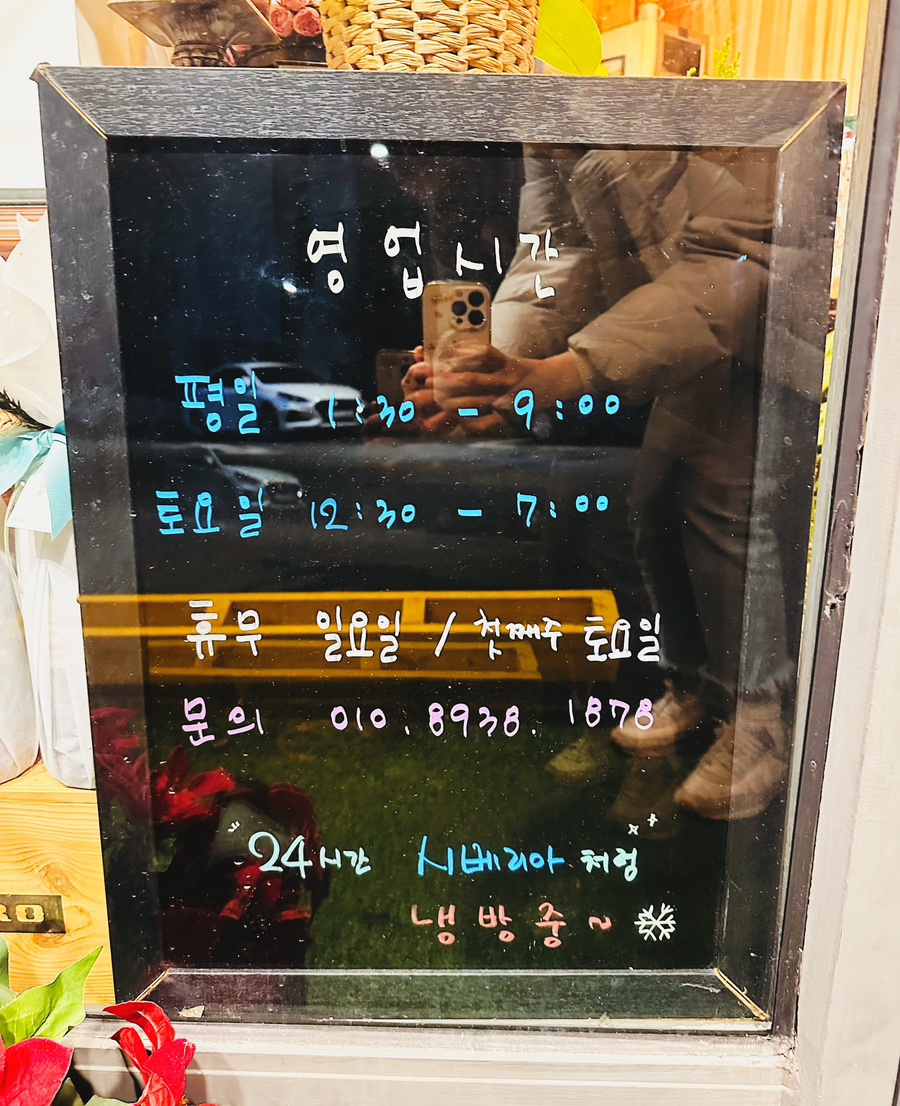 영업시간
평일 1:30 - 9:00
토요일 12:30 - 7:00
휴무 일요일 / 첫째주 토요일
문의 010.8938.1878
24시간 시베리아 처럼
냉방중~